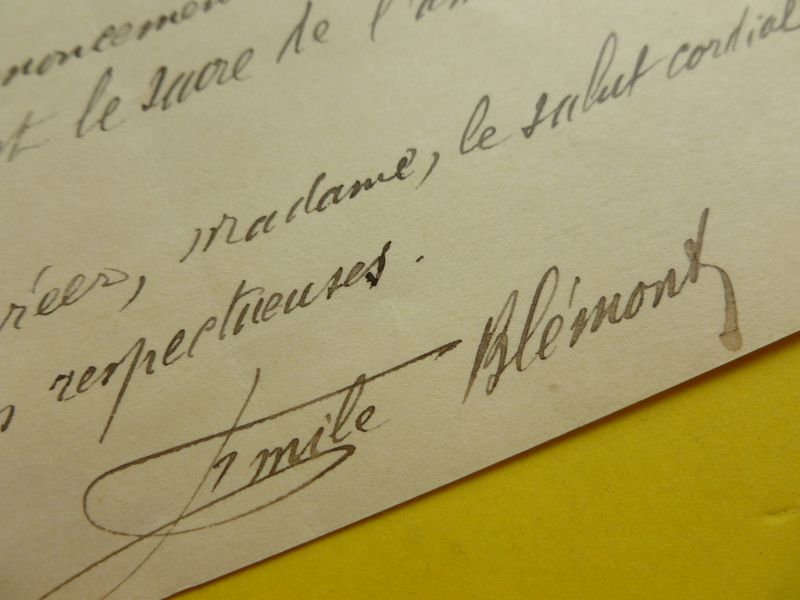 noncement
le sacre de l'am
réer, madame, le salut cordial
respectueuses.
Emile Blémont